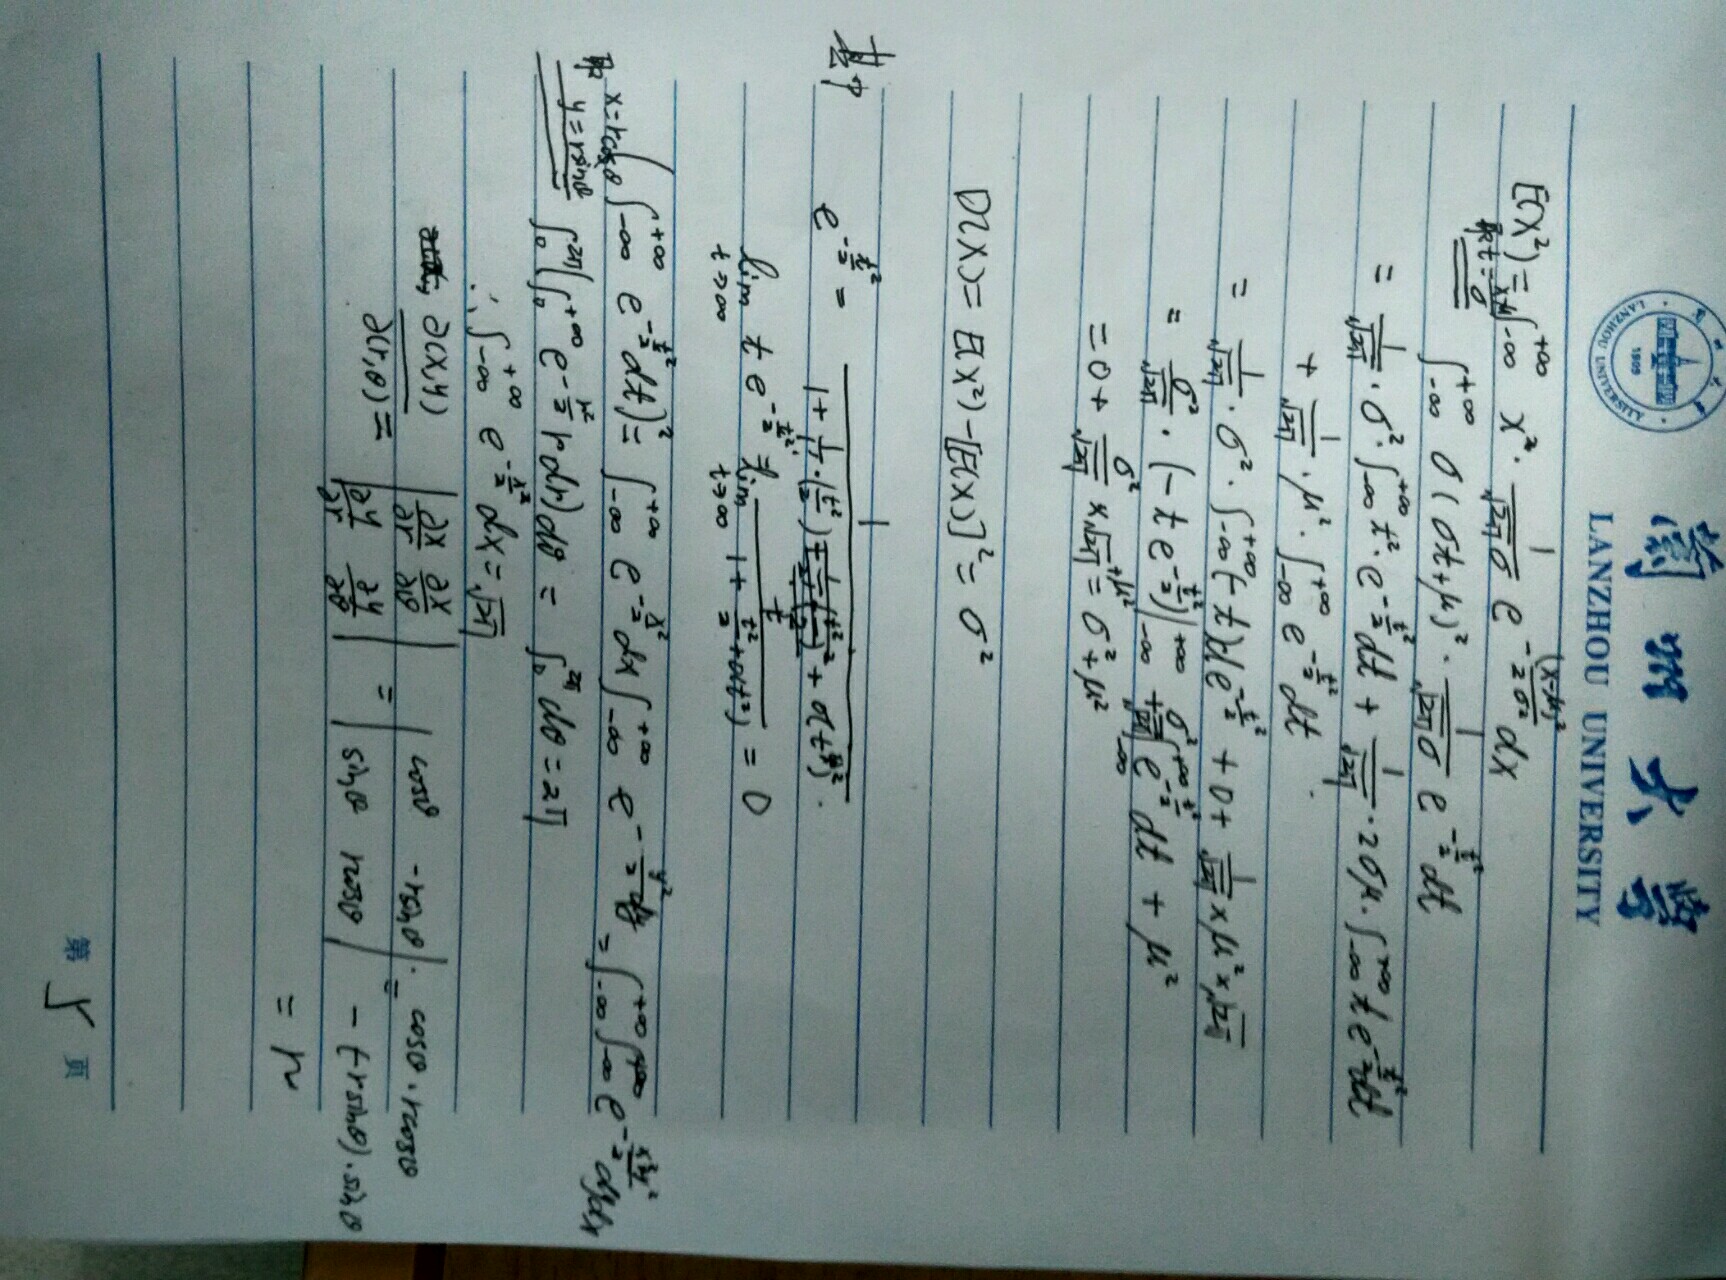 蘭州大學
LANZHOU UNIVERSITY
LANZHOU UNIVERSITY
1909
E(X²) = ∫_{-∞}^{+∞} x² · 1/(√(2π)σ) e^{-(x-μ)²/(2σ²)} dx
取t=(x-μ)/σ ∫_{-∞}^{+∞} σ(σt+μ)² · 1/(√(2π)σ) e^{-t²/2} dt
= 1/√(2π) · σ² · ∫_{-∞}^{+∞} t² · e^{-t²/2} dt + 1/√(2π) · 2σμ · ∫_{-∞}^{+∞} t e^{-t²/2} dt
+ 1/√(2π) · μ² · ∫_{-∞}^{+∞} e^{-t²/2} dt
= 1/√(2π) · σ² · ∫_{-∞}^{+∞} (-t) d e^{-t²/2} + 0 + 1/√(2π) × μ² × √(2π)
= σ²/√(2π) · (-t e^{-t²/2}) |_{-∞}^{+∞} + σ²/√(2π) ∫_{-∞}^{+∞} e^{-t²/2} dt + μ²
= 0 + σ²/√(2π) × √(2π) + μ² = σ² + μ²
D(X) = E(X²) - [E(X)]² = σ²
其中 e^{-t²/2} = 1/(1 + 1/1! · (t²/2) + o(t²)) .
lim_{t→∞} t e^{-t²/2} = lim_{t→∞} t/(1 + t²/2 + o(t²)) = 0
(∫_{-∞}^{+∞} e^{-t²/2} dt)² = ∫_{-∞}^{+∞} e^{-x²/2} dx ∫_{-∞}^{+∞} e^{-y²/2} dy = ∫_{-∞}^{+∞} ∫_{-∞}^{+∞} e^{-(x²+y²)/2} dydx
取 x=rcosθ y=rsinθ ∫_0^{2π} (∫_0^{+∞} e^{-r²/2} r dr) dθ = ∫_0^{2π} dθ = 2π
∴ ∫_{-∞}^{+∞} e^{-x²/2} dx = √(2π)
∂(x,y)/∂(r,θ) = | ∂x/∂r ∂x/∂θ ; ∂y/∂r ∂y/∂θ | = | cosθ -rsinθ ; sinθ rcosθ | = cosθ · rcosθ
- (-rsinθ) · sinθ
= r
第 5 页